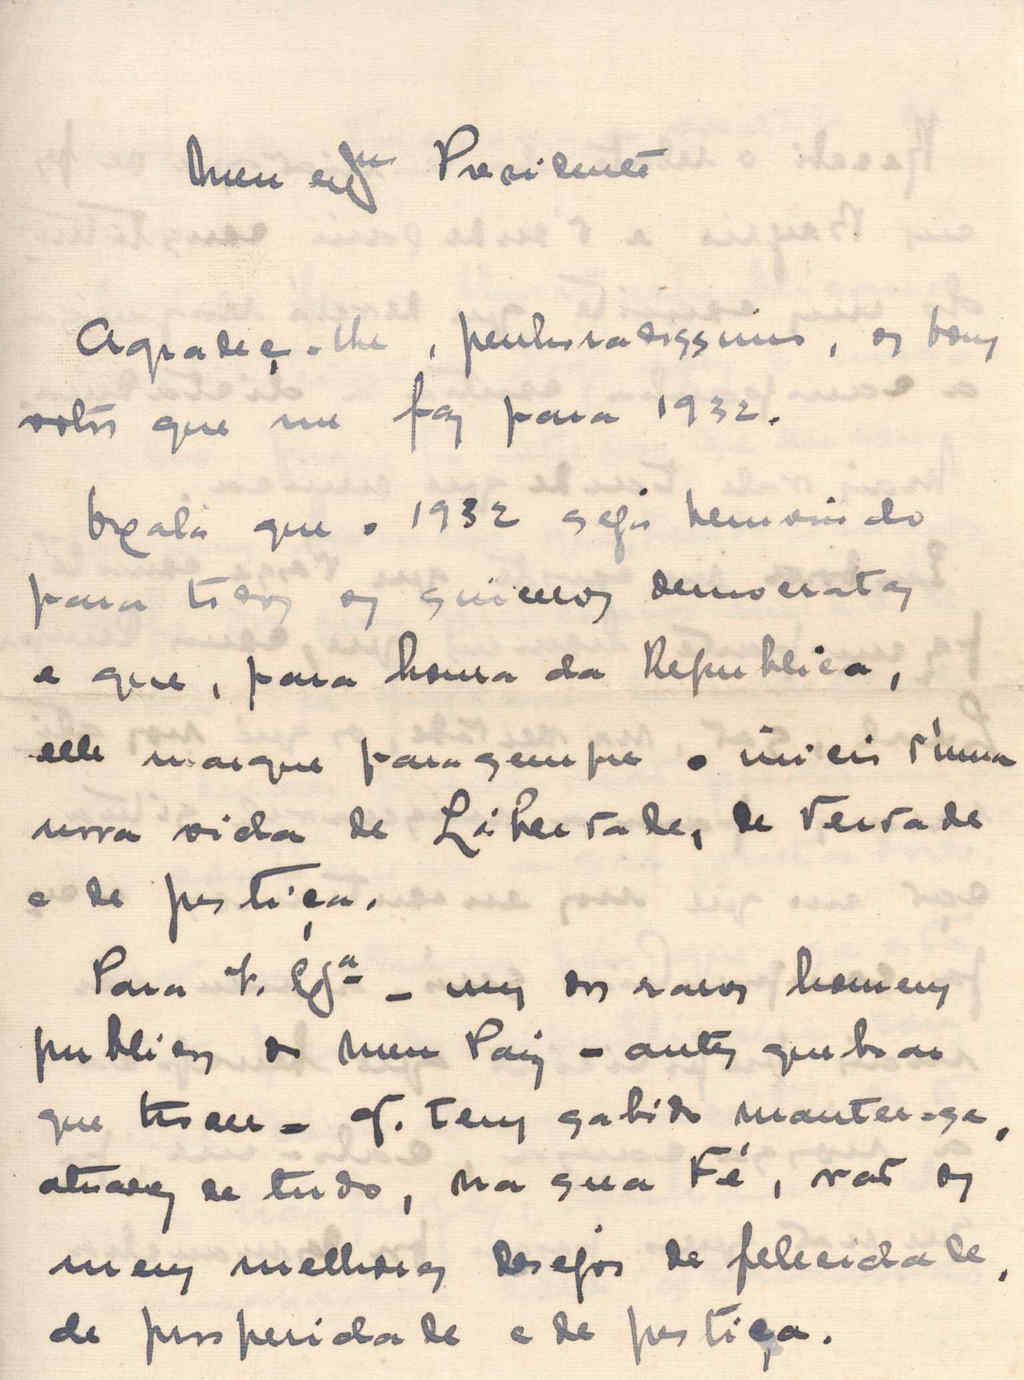 Meu exmo Presidente
Agradeço-lhe, penhoradissimo, os bons
votos que me faz para 1932.
Oxalá que o 1932 seja bemvindo
para todos os sinceros democratas
e que, para honra da Republica,
elle marque para sempre o inicio d'uma
nova vida de Liberdade, de Verdade
e de justiça.
Para V. Exa - um dos raros homens
publicos do meu Paiz - antes quebrar
que torcer - q. tem sabido manter-se,
atravez de tudo, na sua Fé, vão os
meus melhores desejos de felicidade,
de prosperidade e de justiça.